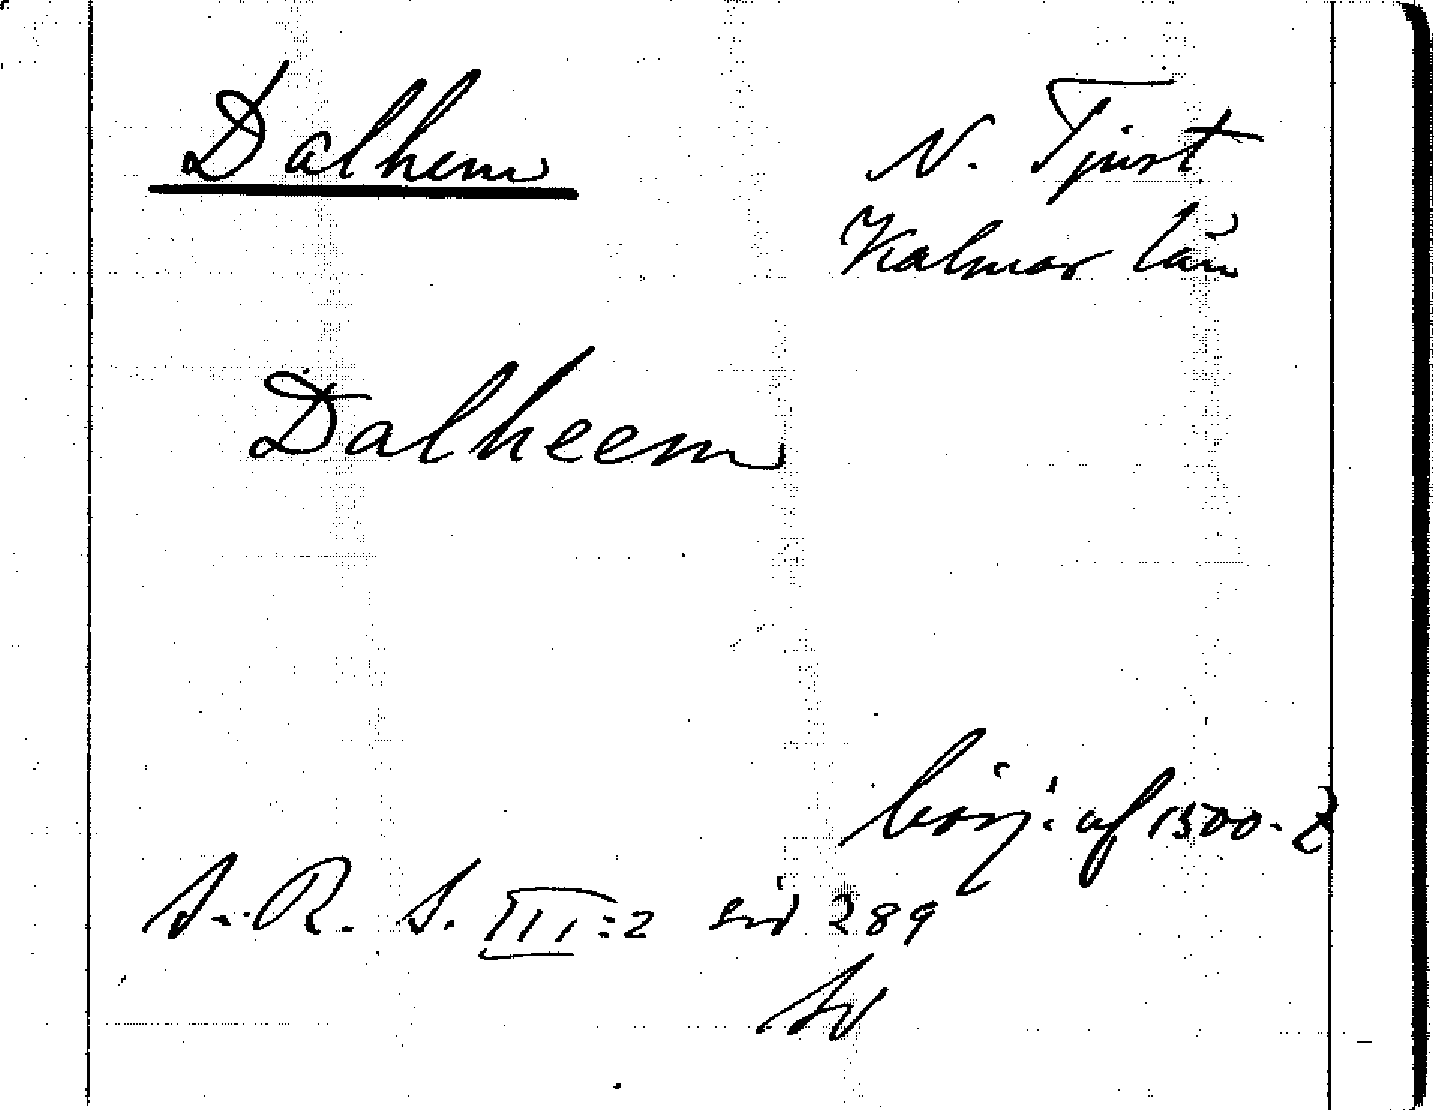 Dalhem
N. Tjust
Kalmar län
Dalheem
börj. af 1500-t
S. R. S. III:2 sid 289
Sv